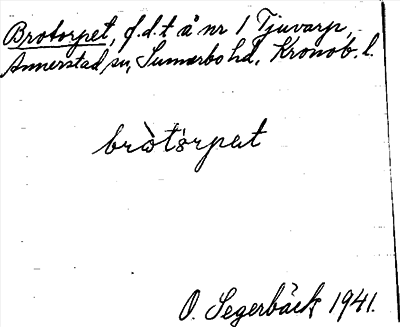 Brotorpet, f.d.t å nr 1 Tjuvarp,
Annerstad sn, Sunnerbo hd, Kronob. l.
bròtórpat
O. Segerbäck 1941.